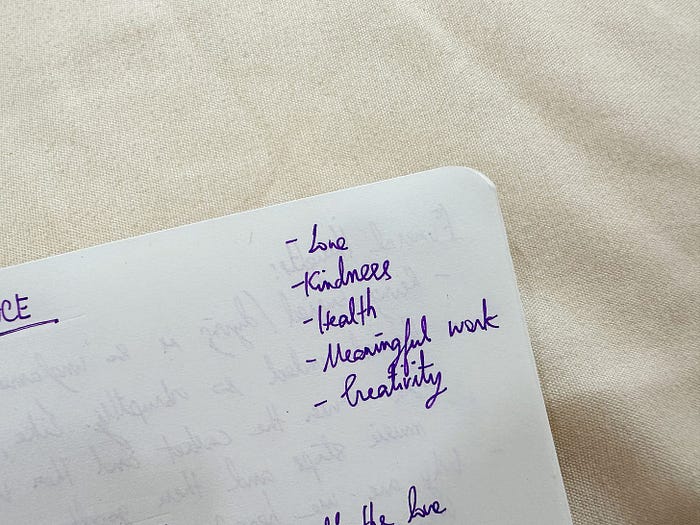 CE
- Love
- Kindness
- Health
- Meaningful work
- Creativity
the love